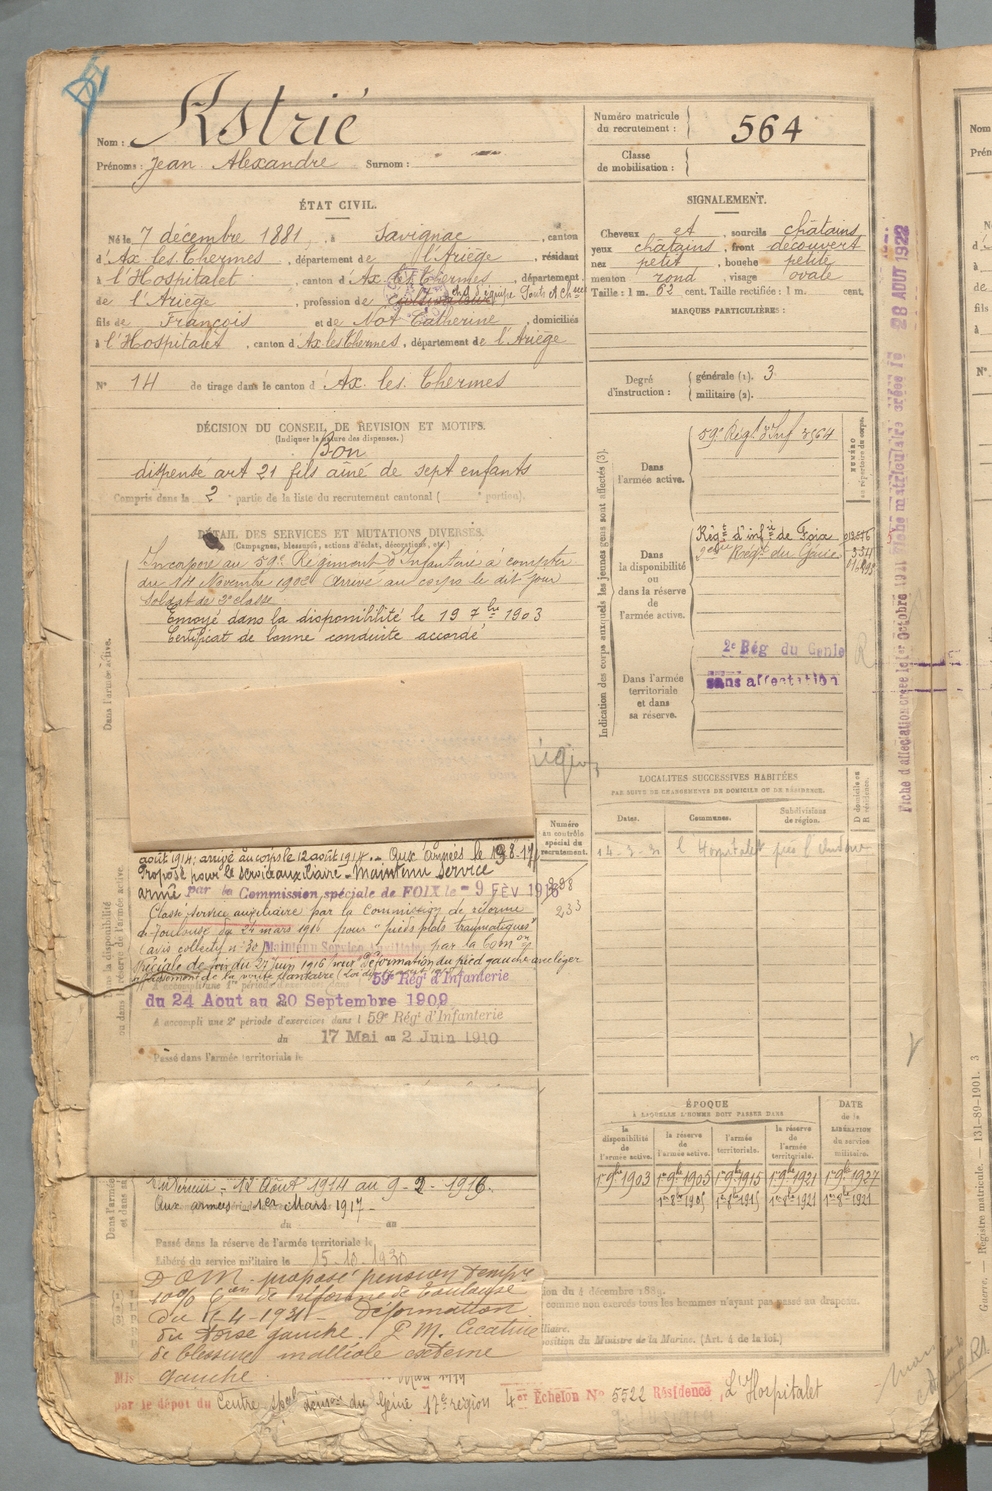 Nom : Astrié
Prénoms : Jean Alexandre Surnom :
Numéro matricule du recrutement : 564
Classe de mobilisation :
ÉTAT CIVIL.
Né le 7 décembre 1881, à Savignac, canton
d'Ax les Thermes, département de l'Ariège, résidant
à l'Hospitalet, canton d'Ax les Thermes, département
de l'Ariège, profession de cultivateur chef d'équipe Ponts et Ch
fils de François et de Not Catherine, domiciliés
à l'Hospitalet, canton d'Ax les Thermes, département de l'Ariège
N° 14 de tirage dans le canton d'Ax les Thermes
SIGNALEMENT.
Cheveux et, sourcils châtains
yeux châtains, front découvert
nez petit, bouche petite
menton rond, visage ovale
Taille : 1 m. 62 cent. Taille rectifiée : 1 m. cent.
MARQUES PARTICULIÈRES :
Degré d'instruction : générale (1). 3
militaire (2).
DÉCISION DU CONSEIL DE REVISION ET MOTIFS.
(Indiquer la nature des dispenses.)
Bon
dispensé art 21 fils aîné de sept enfants
Compris dans la 2e partie de la liste du recrutement cantonal ( portion).
DÉTAIL DES SERVICES ET MUTATIONS DIVERSES.
(Campagnes, blessures, actions d'éclat, décorations, etc.)
Incorporé au 59e Régiment d'Infanterie à compter
du 14 Novembre 1902 Arrivé au corps le dit jour
Soldat de 2e classe
Envoyé dans la disponibilité le 19 7bre 1903
Certificat de bonne conduite accordé
Dans l'armée active.
Indication des corps auxquels les jeunes gens sont affectés (3).
NUMÉRO au répertoire du corps.
Dans l'armée active.
59e Régt d'Inf 2564
Dans la disponibilité ou dans la réserve de l'armée active.
Régt d'infie de Foix
2ème Régt du Génie
Dans l'armée territoriale et dans sa réserve.
2e Rég du Génie
sans affectation
Fiche d'affectation créée le 1er Octobre 1921 Fiche matriculaire créée le 28 AOUT 1922
LOCALITÉS SUCCESSIVES HABITÉES
PAR SUITE DE CHANGEMENTS DE DOMICILE OU DE RÉSIDENCE.
Dates. Communes. Subdivisions de région. D domicile ou R résidence.
l'Hospitalet près l'Andorre
Numéro au contrôle spécial du recrutement.
233
août 1914; arrivé au corps le 12 août 1914. Aux armées le
Proposé pour le service auxiliaire - Maintenu Service
armé par la Commission spéciale de FOIX le - 9 FÉV 1916
Classé Service auxiliaire par la Commission de réforme
de Toulouse du 24 mars 1916 pour "pieds plats traumatiques"
(avis collectif n° 30) Maintenu Service Auxiliaire par la Comon
Spéciale de Foix du 27 juin 1916 pour déformation du pied gauche avec léger
affaissement de la voûte plantaire
A accompli une 1re période d'exercices dans l 59e Régt d'Infanterie
du 24 Aout au 20 Septembre 1909
A accompli une 2e période d'exercices dans l 59e Régt d'Infanterie
du 17 Mai au 2 Juin 1910
Passé dans l'armée territoriale le
Intérieur - 12 Août 1914 au 9-2-1916.
Aux armées - 1er Mars 1917 -
du au
Passé dans la réserve de l'armée territoriale le
Libéré du service militaire le 15-10-1930
ÉPOQUE
À LAQUELLE L'HOMME DOIT PASSER DANS
la disponibilité de l'armée active. la réserve de l'armée active. l'armée territoriale. la réserve de l'armée territoriale. DATE de la LIBÉRATION du service militaire.
1er 9bre 1903 1er 9bre 1905 1er 9bre 1915 1er 9bre 1921 1er 9bre 1927
1er 8bre 1905 1er 8bre 1915 1er 8bre 1921 1er 8bre 1921
D.O.M. proposé pension tempre
10% Con de réforme de Toulouse
du 1-4-1921 Déformation
du tarse gauche. P.M. Cicatrice
de blessure malléole externe
gauche.
ion du 4 décembre 1889.
comme non exercés tous les hommes n'ayant pas passé au drapeau.
iliaire.
position du Ministre de la Marine. (Art. 4 de la loi.)
par le dépôt du Centre spal du Génie 17e région 4er Echelon N° 5522 Résidence L'Hospitalet
Guerre. — Registre matricule. — 131-89-1901. 3